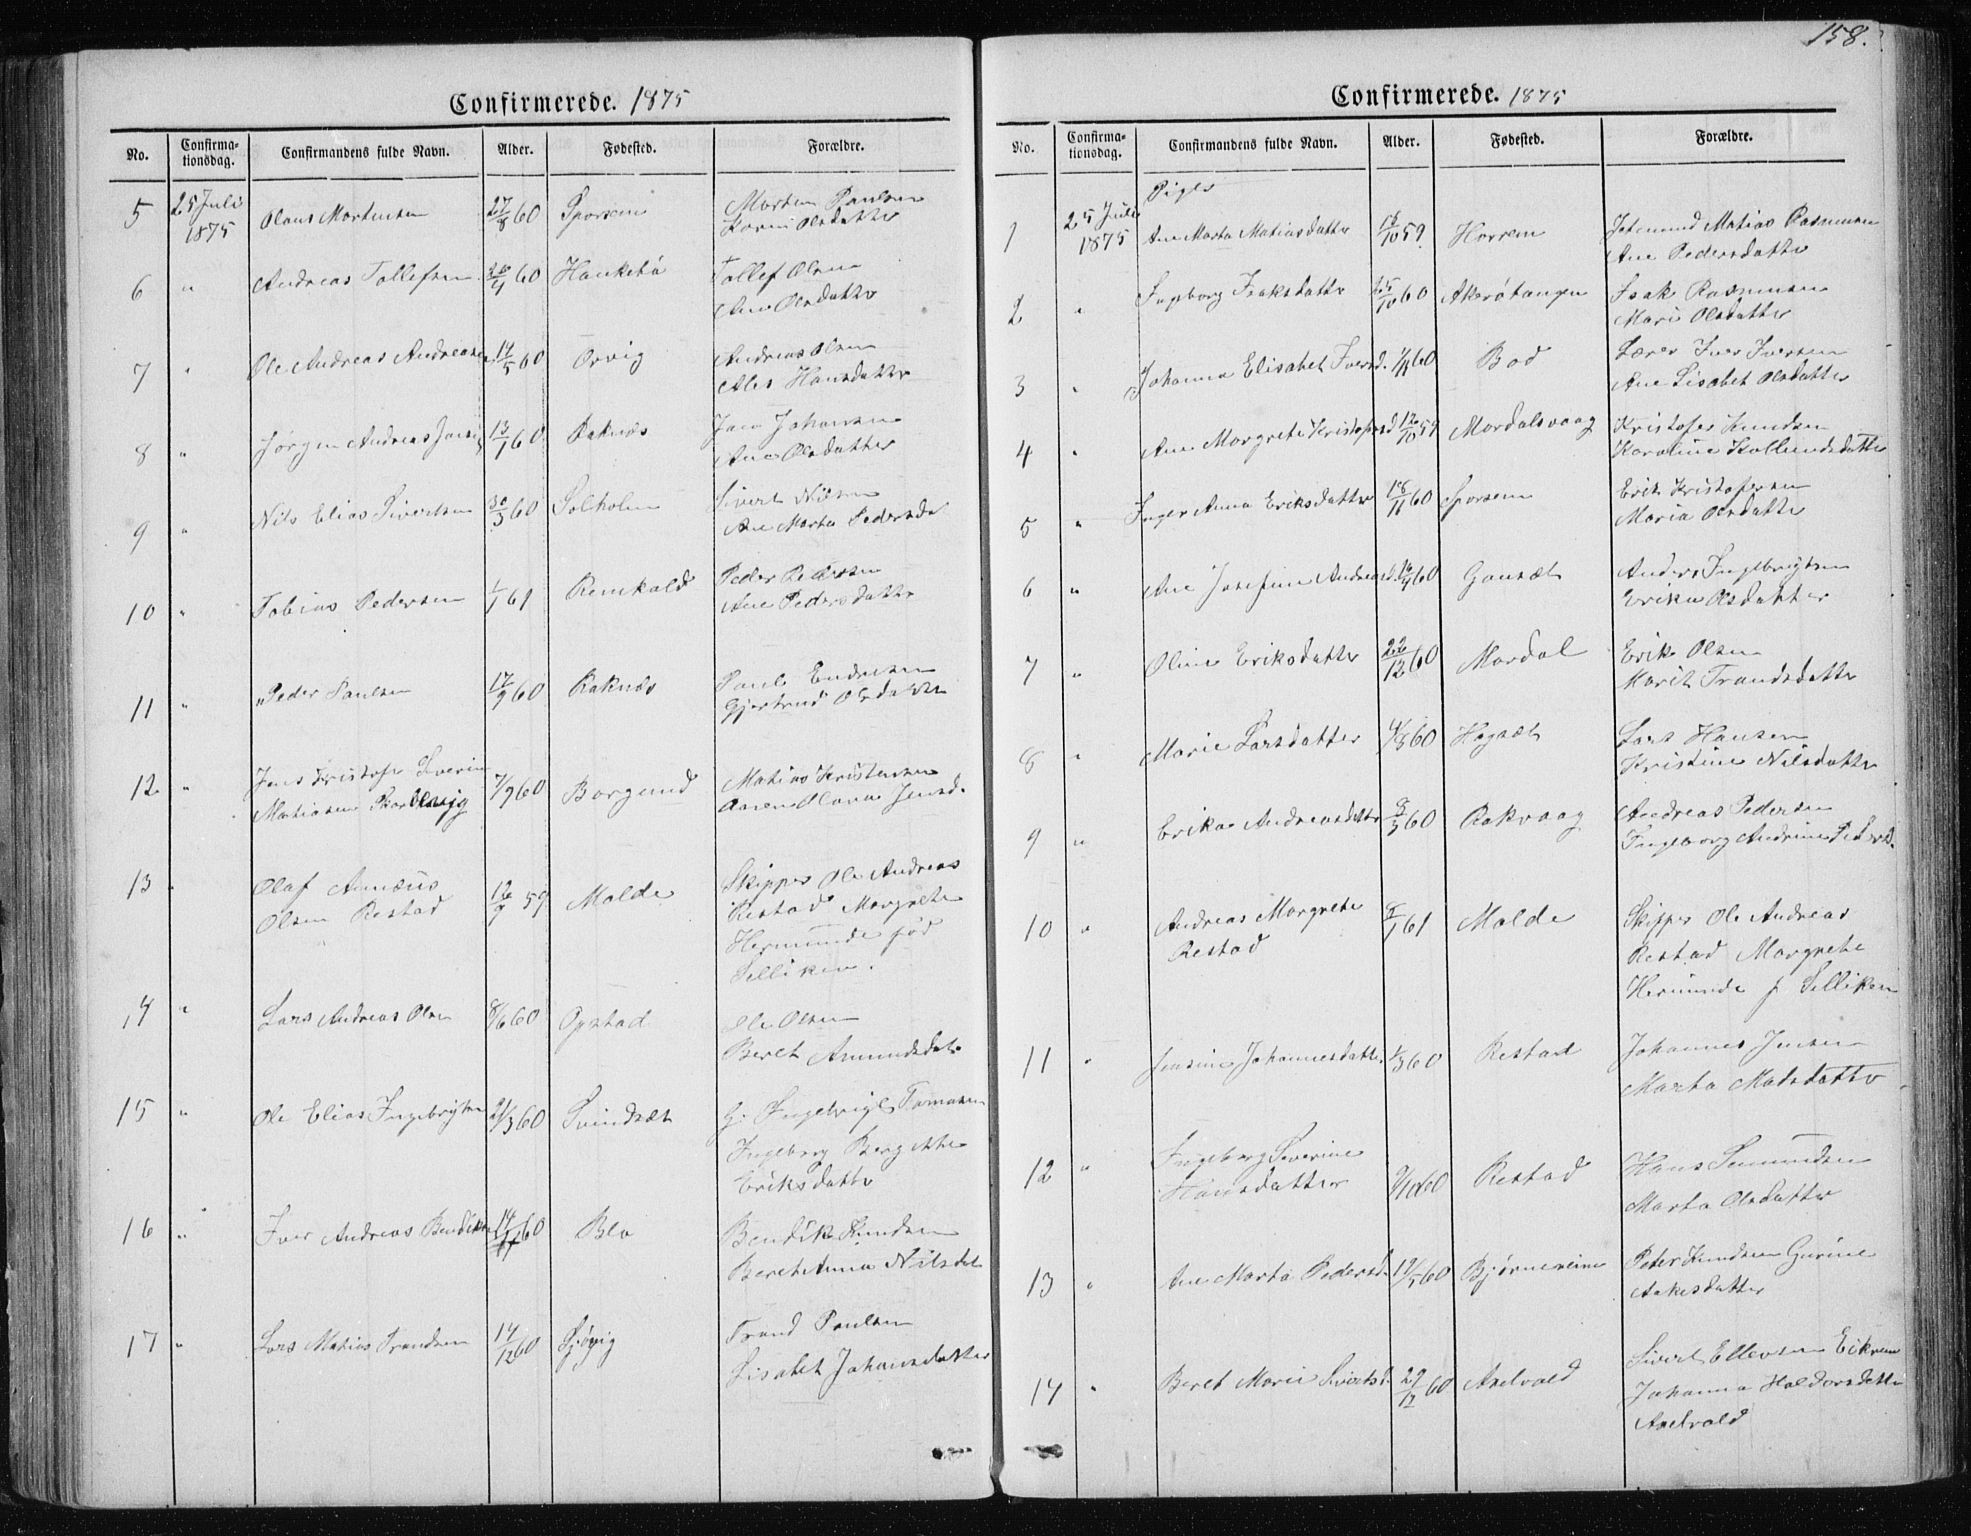 158.
Confirmerede. 1875
No. Confirma-tionsdag. Confirmandens fulde Navn. Alder. Fødested. Forældre.
5 25 Juli 1875 Olaus Mortensen 27/8 60 Sporsem Morten Paulsen
Karen Olsdatter
6 " Andreas Tollefsen 60 Haukebø Tollef Olsen
Ane Olsdatter
7 " Ole Andreas Andreasen 14/5 60 Orvig Andreas Olsen
Hansdatter
8 " Jørgen Andreas Jansen 13/1 60 Raknæs Jan Johansen
Ane Olsdatter
9 " Nils Elias Sivertsen 30/3 60 Solholm Sivert Nilsen
Ane Marta Pedersd
10 " Tobias Pedersen 1/1 61 Remkald Peder Pedersen
Ane Pedersdatter
11 " Peder Paulsen 17/9 60 Raknæs Paul Endresen
Gjertrud Olsdatter
12 " Jens Kristofer Severin
Matiasen 7/9 60 Borgund Matias Kristensen
Olava Jensd.
13 " Olaf Annæus
Olsen Restad 12/9 59 Molde Skipper Ole Andreas
Restad Margrete
Hermunde fød
Selliken.
14 " Lars Andreas Olsen 8/6 60 Opstad Ole Olsen
Beret Amundsdat.
15 " Ole Elias Ingebrigtsen 21/3 60 Svindsæt G. Ingebrigt Tomasen
Ingeborg Bergitte
Eriksdatter
16 " Iver Andreas Bendiksen 14/11 60 Blo Bendik Knudsen
Beret Anna Nilsdat
17 " Lars Matias Trandsen 14/12 60 Sjøvig Trand Paulsen
Lisabet Johansdatter
Confirmerede. 1875
No. Confirma-tionsdag. Confirmandens fulde Navn. Alder. Fødested. Forældre.
Piger
1 25 Juli 1875 Ane Marta Matiasdatter 18/10 59 Horrem Matias Rasmusen
Ane Pedersdatter
2 " Ingeborg Isaksdatter 25/10 60 Akerøtangen Isak Rasmusen
Mari Olsdatter
3 " Johanna Elisabet Iversd. 60 Bod Lærer Iver Iversen
Ane Lisabet Olsdatter
4 " Ane Margrete Kristofersd 12/10 59 Mordalsvaag Kristofer Knudsen
Karoline Kolbeinsdatter
5 " Inger Anna Eriksdatter 18/11 60 Sporsem Erik Kristofersen
Maria Olsdatter
6 " Ane Josefine Andreasd. 16/9 60 Gausæt Anders Ingebrigtsen
Erika Olsdatter
7 " Oline Eriksdatter 22/12 60 Mordal Erik Olsen
Marit Trandsdatter
8 " Marie Larsdatter 4/8 60 Hagsæt Lars Hansen
Kristine Nilsdatter
9 " Erika Andreasdatter 60 Rakvaag Andreas Pedersen
Ingeborg Andrine Pedersd.
10 " Andreas Margrete
Restad 61 Molde Skipper Ole Andreas
Restad Margrete
Hermunde f Selliken
11 " Jensine Johannesdatter 1/3 60 Restad Johannes Jensen
Marta Madsdatter
12 " Ingeborg Severine
Hansdatter 9/10 60 Restad Hans Semundsen
Marta Olsdatter
13 " Ane Marta Pedersd. 19/5 60 Bjørnereim Peter Knudsen Gurine
Aakesdatter
14 " Beret Marie Sivertsd. 29/12 60 Axelvold Sivert Ellevsen Eikrem
Johanna Haldorsdatter
Axelvold